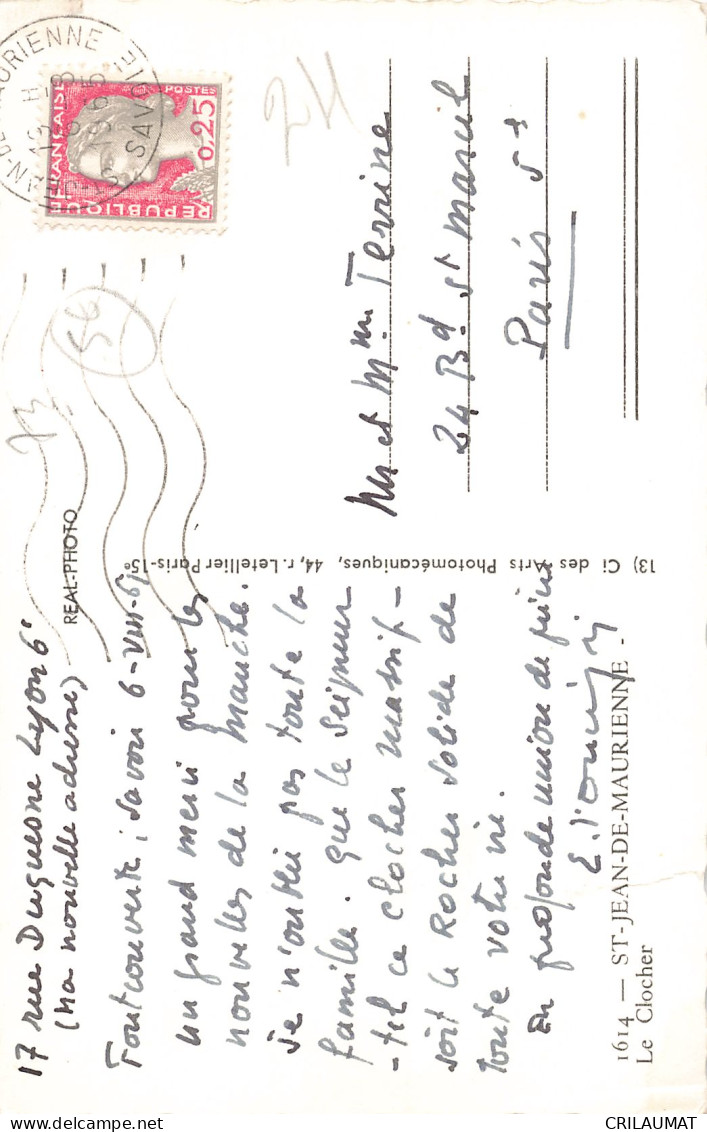 17 rue Duquesne Lyon 6e
(ma nouvelle adresse)
Fontcouverte, Savoie 6-VIII-65
un grand merci pour les
nouvelles de la Manche.
Je n'oublie pas toute la
famille. Que le Seigneur
-tel ce clocher massif-
soit le Rocher solide de
toute votre vie.
En profonde union de prière
1614 — ST-JEAN-DE-MAURIENNE -
Le Clocher
REAL-PHOTO
13) Ci des Arts Photomécaniques, 44, r. Letellier Paris-15e
Mr et Mme Terrine
24 Bd St Marcel
Paris 5e
RÉPUBLIQUE FRANÇAISE
POSTES
0,25
13 H
8
1965
SAVOIE
73
56
24
CRILAUMAT